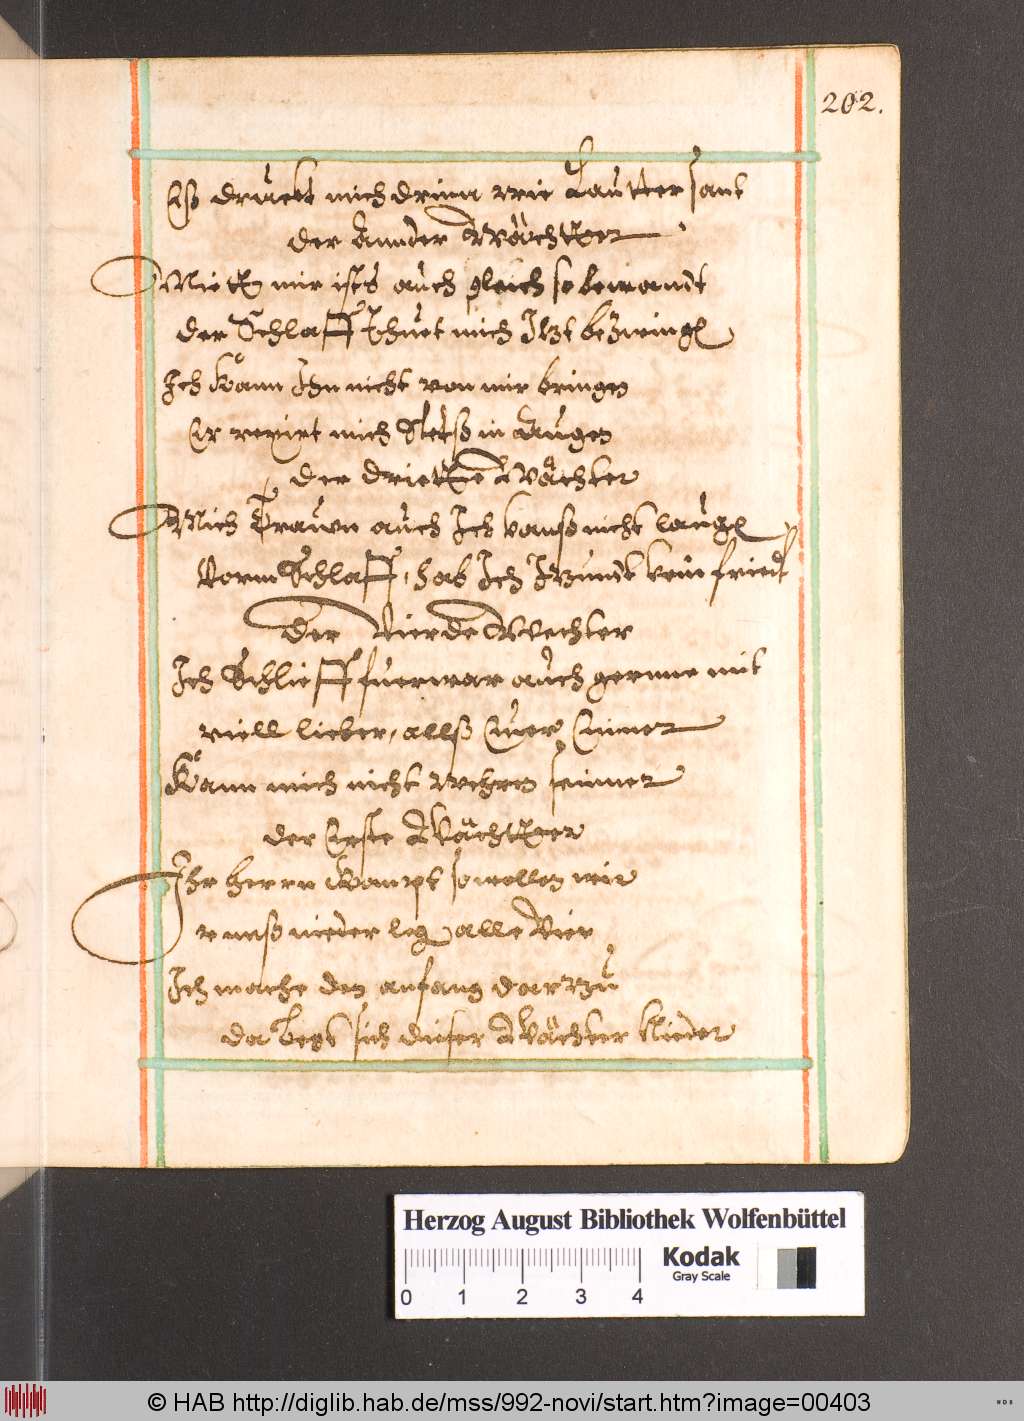 202.
Eß druckt mich drinn wie Lautter sant
Der Annder Wächtter
Mitt mir ists auch gleich so bewandt
der Schlaff Thuet mich Itzt bezwingen
Ich Kann Ihn nicht von mir bringen
Er reyitt mich Stetß in Augen
Der dritte Wächter
Mich Trauwn auch Ich kanß nicht laugen
Vorm Schlaff, hab Ich Itzundt kein friedt
Der Vierde Wechter
Ich Schlieff fuerwar auch gernne mit
viell lieber, allß Euer Einner
Kann mich nicht wehren seinner
Der Erste Wächtter
Ihr herrn Kompt so wollen wir
vnnß nieder leg alle Vier
Ich mache den anfang darzu
Da Legt sich dieser Wächter Nieder
Herzog August Bibliothek Wolfenbüttel
0 1 2 3 4
Kodak
Gray Scale
© HAB http://diglib.hab.de/mss/992-novi/start.htm?image=00403